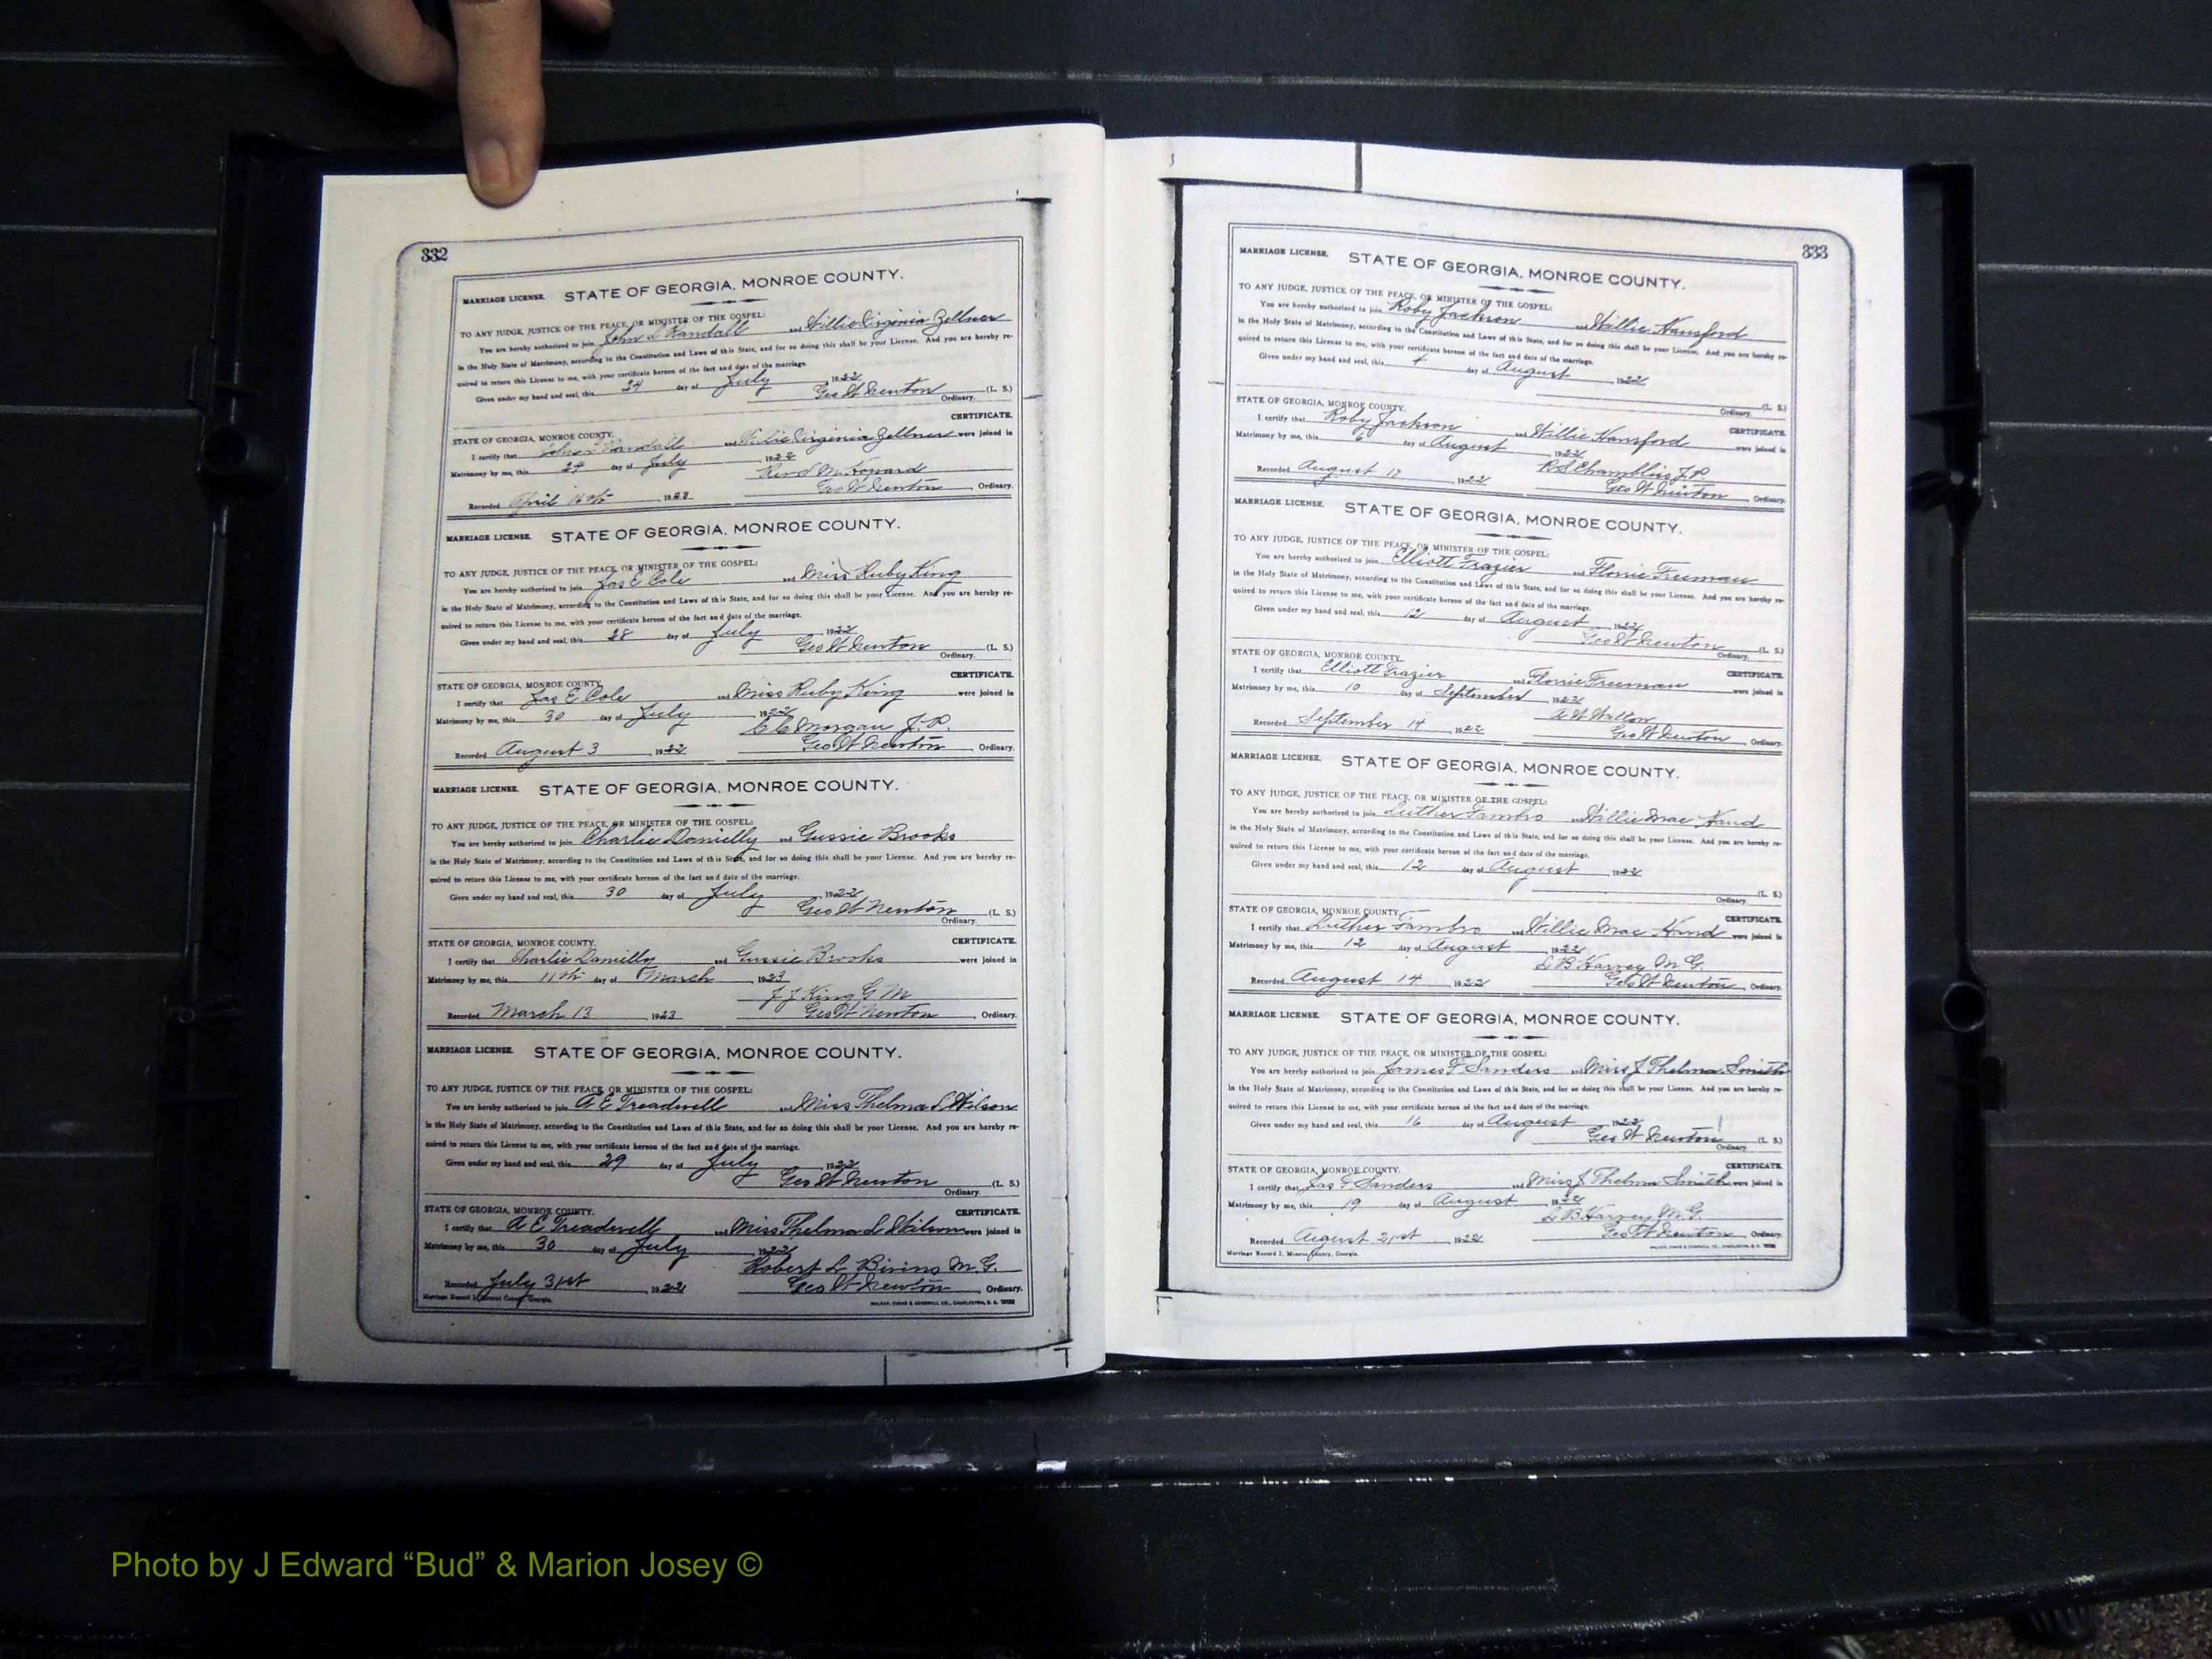 332
MARRIAGE LICENSE. STATE OF GEORGIA, MONROE COUNTY.
TO ANY JUDGE, JUSTICE OF THE PEACE, OR MINISTER OF THE GOSPEL:
You are hereby authorized to join John L Randall and Willie Virginia Zellner
in the Holy State of Matrimony, according to the Constitution and Laws of this State, and for so doing this shall be your License. And you are hereby re-
quired to return this License to me, with your certificate hereon of the fact and date of the marriage.
Given under my hand and seal, this 24 day of July 1922
Geo W Newton (L. S.)
Ordinary.
CERTIFICATE.
STATE OF GEORGIA, MONROE COUNTY.
I certify that John L Randall and Willie Virginia Zellner were joined in
Matrimony by me, this 24 day of July 1922
Rev S M Howard
Recorded April 16th 1923 Geo W Newton, Ordinary.
MARRIAGE LICENSE. STATE OF GEORGIA, MONROE COUNTY.
TO ANY JUDGE, JUSTICE OF THE PEACE, OR MINISTER OF THE GOSPEL:
You are hereby authorized to join Jas E Cole and Miss Ruby King
in the Holy State of Matrimony, according to the Constitution and Laws of this State, and for so doing this shall be your License. And you are hereby re-
quired to return this License to me, with your certificate hereon of the fact and date of the marriage.
Given under my hand and seal, this 28 day of July 1922
Geo W Newton (L. S.)
Ordinary.
CERTIFICATE.
STATE OF GEORGIA, MONROE COUNTY.
I certify that Jas E Cole and Miss Ruby King were joined in
Matrimony by me, this 30 day of July 1922
C C Morgan J. P.
Recorded August 3 1922 Geo W Newton, Ordinary.
MARRIAGE LICENSE. STATE OF GEORGIA, MONROE COUNTY.
TO ANY JUDGE, JUSTICE OF THE PEACE, OR MINISTER OF THE GOSPEL:
You are hereby authorized to join Charlie Danielly and Gussie Brooks
in the Holy State of Matrimony, according to the Constitution and Laws of this State, and for so doing this shall be your License. And you are hereby re-
quired to return this License to me, with your certificate hereon of the fact and date of the marriage.
Given under my hand and seal, this 30 day of July 1922
Geo W Newton (L. S.)
Ordinary.
STATE OF GEORGIA, MONROE COUNTY. CERTIFICATE.
I certify that Charlie Danielly and Gussie Brooks were joined in
Matrimony by me, this 11th day of March 1923
J J King G M
Recorded March 13 1923 Geo W Newton, Ordinary.
MARRIAGE LICENSE. STATE OF GEORGIA, MONROE COUNTY.
TO ANY JUDGE, JUSTICE OF THE PEACE, OR MINISTER OF THE GOSPEL:
You are hereby authorized to join A E Treadwell and Miss Thelma L Wilson
in the Holy State of Matrimony, according to the Constitution and Laws of this State, and for so doing this shall be your License. And you are hereby re-
quired to return this License to me, with your certificate hereon of the fact and date of the marriage.
Given under my hand and seal, this 29 day of July 1922
Geo W Newton (L. S.)
Ordinary.
STATE OF GEORGIA, MONROE COUNTY. CERTIFICATE.
I certify that A E Treadwell and Miss Thelma L Wilson were joined in
Matrimony by me, this 30 day of July 1922
Robert L Bivins M. G.
Recorded July 31st 1922 Geo W Newton, Ordinary.
333
MARRIAGE LICENSE. STATE OF GEORGIA, MONROE COUNTY.
TO ANY JUDGE, JUSTICE OF THE PEACE, OR MINISTER OF THE GOSPEL:
You are hereby authorized to join Roby Jackson and Willie Hansford
in the Holy State of Matrimony, according to the Constitution and Laws of this State, and for so doing this shall be your License. And you are hereby re-
quired to return this License to me, with your certificate hereon of the fact and date of the marriage.
Given under my hand and seal, this 4 day of August 1922
(L. S.)
Ordinary.
STATE OF GEORGIA, MONROE COUNTY. CERTIFICATE.
I certify that Roby Jackson and Willie Hansford were joined in
Matrimony by me, this 6 day of August 1922
R S Chambliss J. P.
Recorded August 17 1922 Geo W Newton, Ordinary.
MARRIAGE LICENSE. STATE OF GEORGIA, MONROE COUNTY.
TO ANY JUDGE, JUSTICE OF THE PEACE, OR MINISTER OF THE GOSPEL:
You are hereby authorized to join Elliott Frazier and Florrie Freeman
in the Holy State of Matrimony, according to the Constitution and Laws of this State, and for so doing this shall be your License. And you are hereby re-
quired to return this License to me, with your certificate hereon of the fact and date of the marriage.
Given under my hand and seal, this 12 day of August 1922
Geo W Newton (L. S.)
Ordinary.
STATE OF GEORGIA, MONROE COUNTY. CERTIFICATE.
I certify that Elliott Frazier and Florrie Freeman were joined in
Matrimony by me, this 10 day of September 1922
A W Walton
Recorded September 14 1922 Geo W Newton, Ordinary.
MARRIAGE LICENSE. STATE OF GEORGIA, MONROE COUNTY.
TO ANY JUDGE, JUSTICE OF THE PEACE, OR MINISTER OF THE GOSPEL:
You are hereby authorized to join Luther Fambro and Willie Mae Hand
in the Holy State of Matrimony, according to the Constitution and Laws of this State, and for so doing this shall be your License. And you are hereby re-
quired to return this License to me, with your certificate hereon of the fact and date of the marriage.
Given under my hand and seal, this 12 day of August 1922
(L. S.)
Ordinary.
STATE OF GEORGIA, MONROE COUNTY. CERTIFICATE.
I certify that Luther Fambro and Willie Mae Hand were joined in
Matrimony by me, this 12 day of August 1922
L B Harvey M. G.
Recorded August 14 1922 Geo W Newton, Ordinary.
MARRIAGE LICENSE. STATE OF GEORGIA, MONROE COUNTY.
TO ANY JUDGE, JUSTICE OF THE PEACE, OR MINISTER OF THE GOSPEL:
You are hereby authorized to join James F Sanders and Miss J Thelma Smith
in the Holy State of Matrimony, according to the Constitution and Laws of this State, and for so doing this shall be your License. And you are hereby re-
quired to return this License to me, with your certificate hereon of the fact and date of the marriage.
Given under my hand and seal, this 16 day of August 1922
Geo W Newton (L. S.)
Ordinary.
STATE OF GEORGIA, MONROE COUNTY. CERTIFICATE.
I certify that Jas F Sanders and Miss J Thelma Smith were joined in
Matrimony by me, this 19 day of August 1922
L B Harvey M. G.
Recorded August 21st 1922 Geo W Newton, Ordinary.
Marriage Record I. Monroe County, Georgia.
Photo by J Edward “Bud” & Marion Josey ©